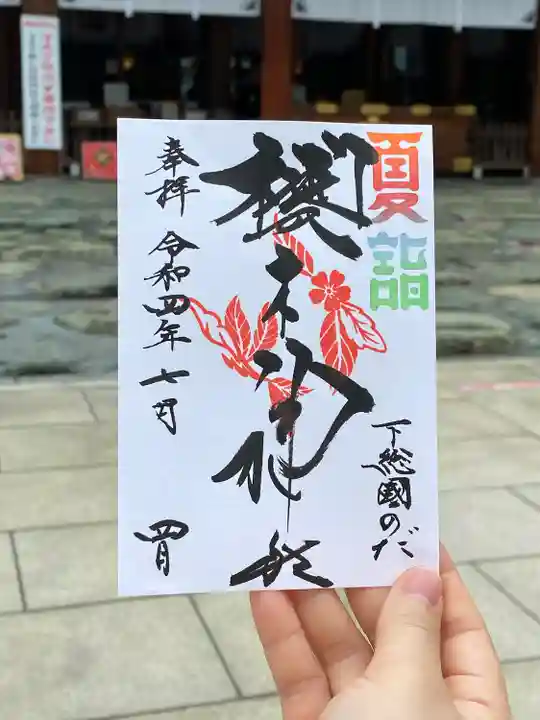 夏詣
下総國のだ
櫻木神社
奉拝 令和四年 七月 四日